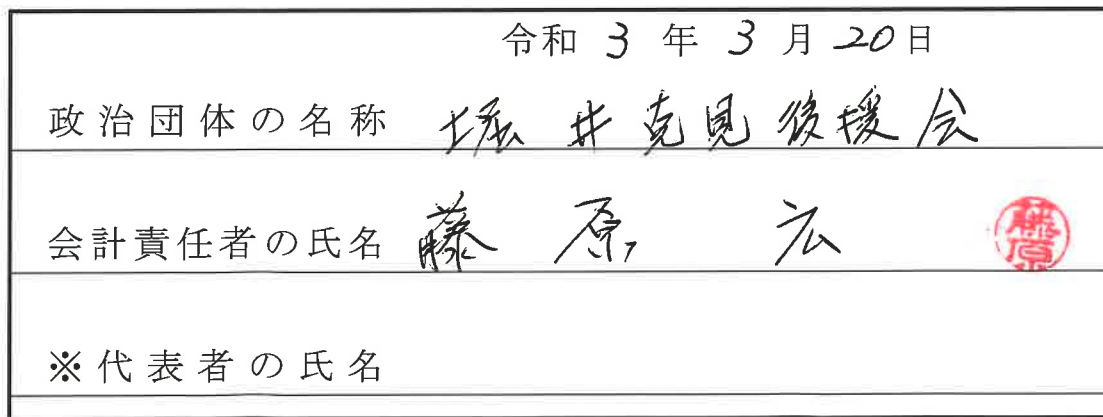 令和 3 年 3 月 20日
政治団体の名称 堀井克見後援会
会計責任者の氏名 藤原 広 藤原
※代表者の氏名